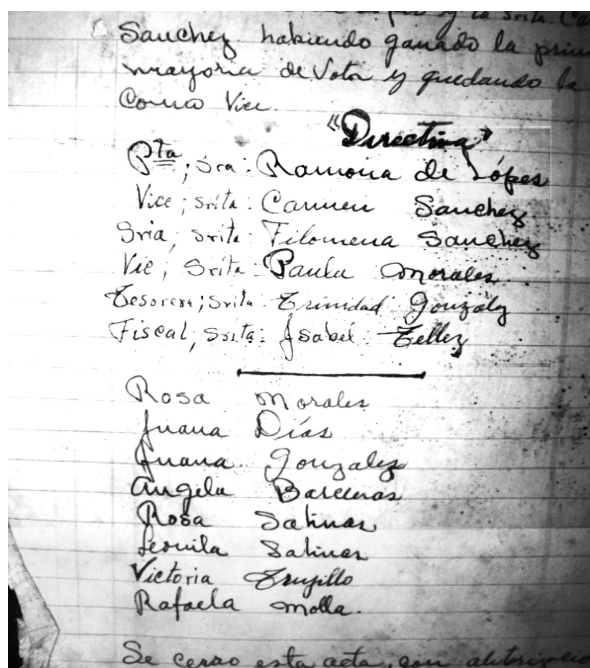 y la Srita. Ca
Sanchez habiendo ganado la prim
mayoria de Votos y quedando la
Como Vice.
"Directiva"
Pta; Sra: Ramona de Lópes
Vice; Srita: Carmen Sanchez
Sria; Srita: Filomena Sanchez
Vic; Srita: Paula Morales
Tesorera; Srita: Trinidad Gonzalez
Fiscal; Srita: Isabel Tellez
Rosa Morales
Juana Días
Juana Gonzalez
Angela Barcenas
Rosa Salinas
Leonila Salinas
Victoria Trujillo
Rafaela Molla.
Se cerro esta acta, con